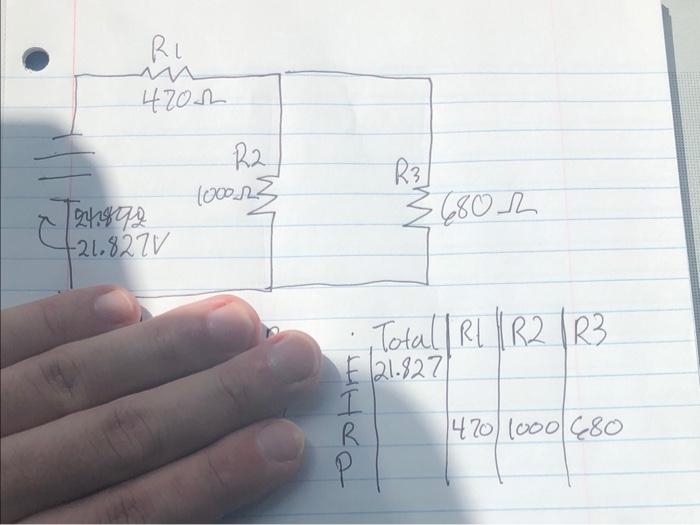 R1
470Ω
R2
1000Ω
R3
680Ω
21.827V
Total R1 R2 R3
E 21.827
I
R 470 1000 680
P